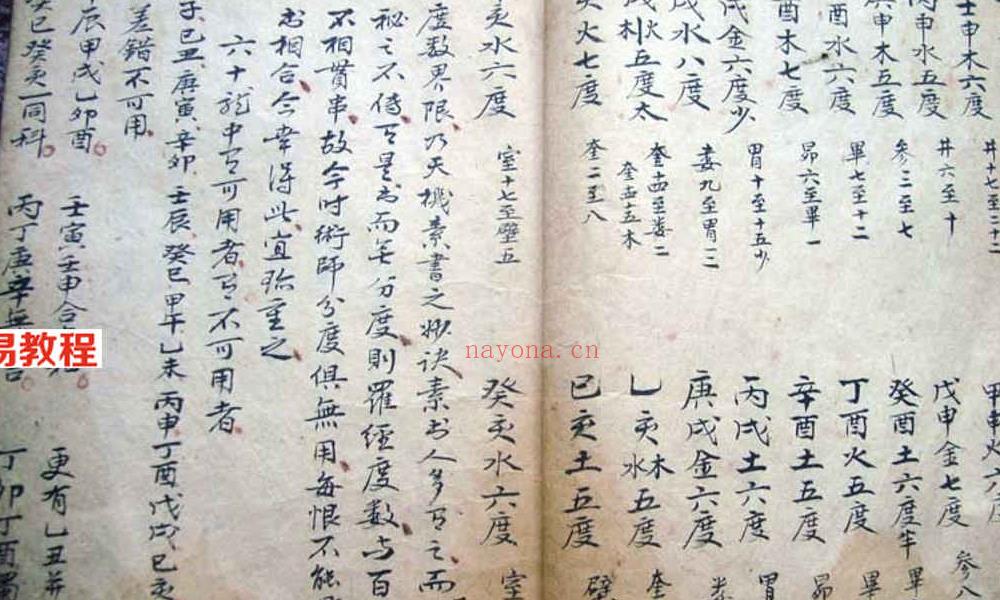 壬申木六度
井十七至二十二
甲申火六度
丙申水五度
井六至十
戊申金七度
庚申木五度
参二至七
癸酉土六度半
参八
酉水六度
畢七至十二
丁酉火五度
畢
酉木七度
昴六至畢一
辛酉土五度
畢
戌金六度少
胃十至十五少
丙戌土六度
昴
戌水八度
婁九至胃二
庚戌金六度
胃
五度太
奎十四至婁二
乙亥
五度
婁
亥火七度
奎二至八
己亥土五度
奎
亥水六度
室十七至壁五
癸亥水六度
室
度数界限乃天機素書之妙诀素书人多有之而
秘之不傅可是书而無分度則羅經度数与百
不相贯串故今时術師分度俱無用每恨不能
书相合今幸得此宜珍重之
六十龍中有可用者有不可用者
子己丑庚寅辛卯壬辰癸巳甲午乙未丙申丁酉戊戌己亥
差錯不可用
辰甲戌乙卯酉
壬寅壬申合
更有乙丑并
癸巳癸亥一同科
丙丁庚辛
丁卯丁酉
易教程
nayona.cn